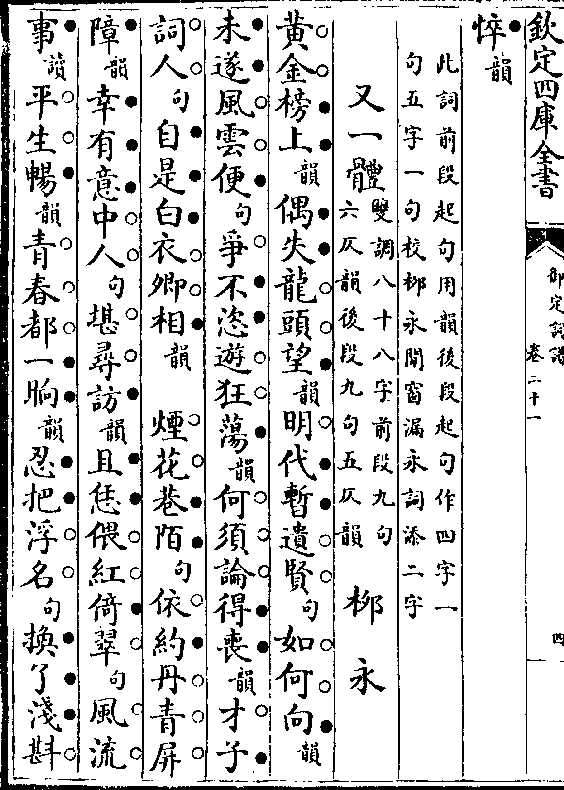 欽定四庫全書
御定詞譜
卷二十一
四
悴韻
此詞前段起句用韻後段起句作四字一
句五字一句校栁永閒窗漏永詞添二字
又一體雙調八十八字前段九句
六仄韻後段九句五仄韻
栁永
黃金榜上韻偶失龍頭望韻明代暫遺賢句如何向韻
未遂風雲便句爭不恣遊狂蕩韻何須論得喪韻才子
詞人句自是白衣卿相韻　煙花巷陌句依約丹青屏
障韻幸有意中人句堪尋訪韻且恁偎紅倚翠句風流
事讀平生暢韻青春都一晌韻忍把浮名句換了淺斟